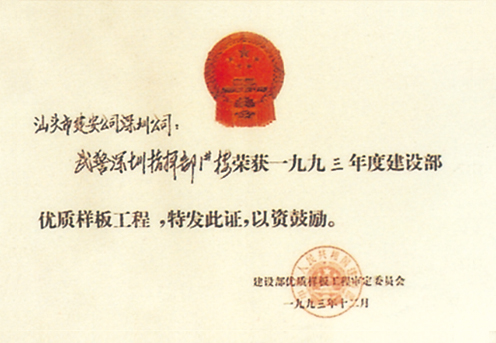 汕头市建安公司深圳公司：
武警深圳指挥部1#楼荣获一九九三年度建设部
优质样板工程，特发此证，以资鼓励。
建设部优质样板工程审定委员会
一九九三年十二月